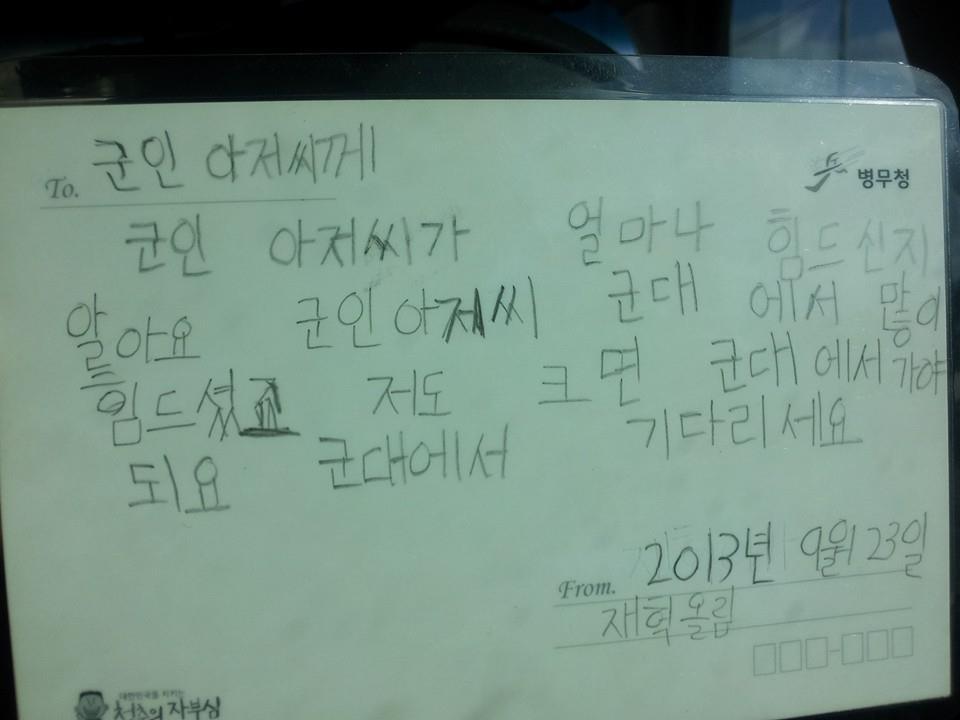 To. 군인 아저씨께
병무청
군인 아저씨가 얼마나 힘드신지
알아요 군인아저씨 군대 에서 많이
힘드셨죠 저도 크면 군대에서 가야
되요 군대에서 기다리세요
2013년 9월 23일
From.
재혁올림
대한민국을 지키는
청춘의 자부심